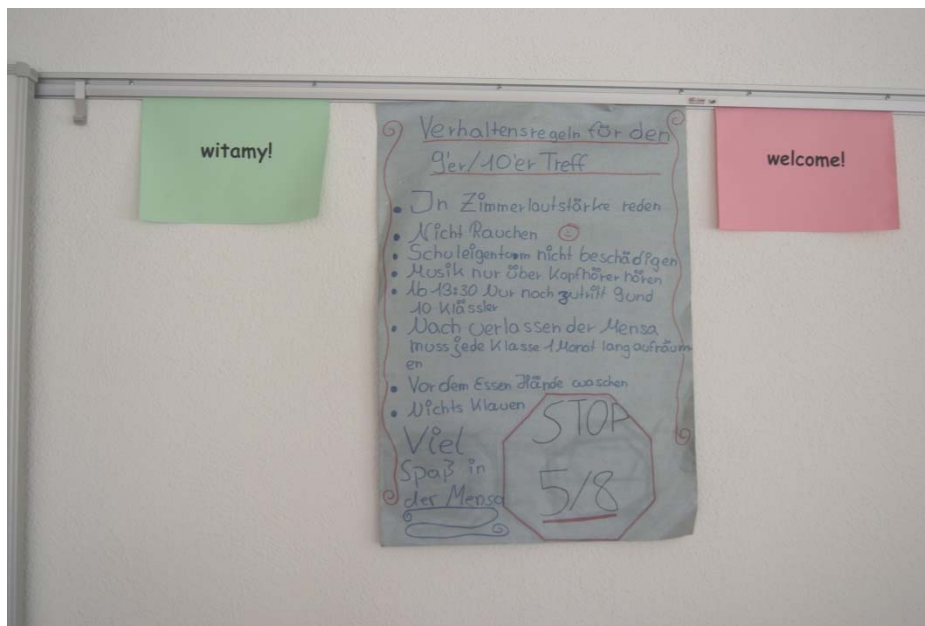 witamy!
Verhaltensregeln für den
9'er/10'er Treff
• In Zimmerlautstärke reden
• Nicht Rauchen
• Schuleigentum nicht beschädigen
• Musik nur über Kopfhörer hören
• Ab 13:30 Nur noch zutritt 9und
10 Klässler
• Nach verlassen der Mensa
muss jede Klasse 1 Monat lang aufräum
en
• Vor dem Essen Hände waschen
• Nichts Klauen
Viel
Spaß in
der Mensa
STOP
5/8
welcome!